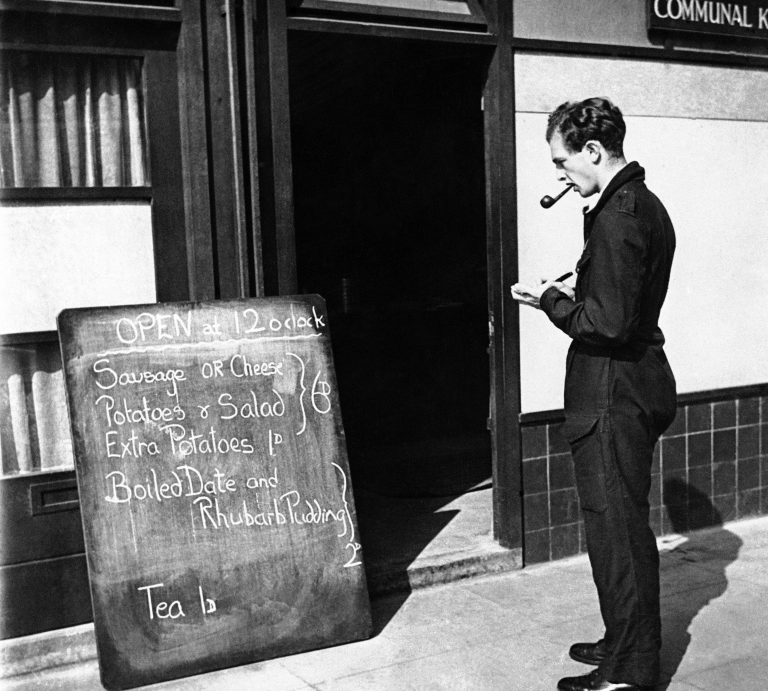 COMMUNAL K
OPEN at 12 oclock
Sausage OR Cheese
Potatoes & Salad
6D
Extra Potatoes 1D
Boiled Date and
Rhubarb Pudding
2D
Tea 1D